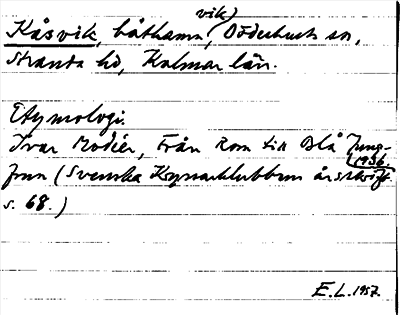 vik)
Kåsvik, båthamn, Döderhults sn,
Stranda hd, Kalmar län.
Etymologi.
Ivar Modéer, Från Rom till Blå Jung-
frun (Svenska Kryssarklubbens årsskrift 1936.
s. 68.)
E.L. 1957.